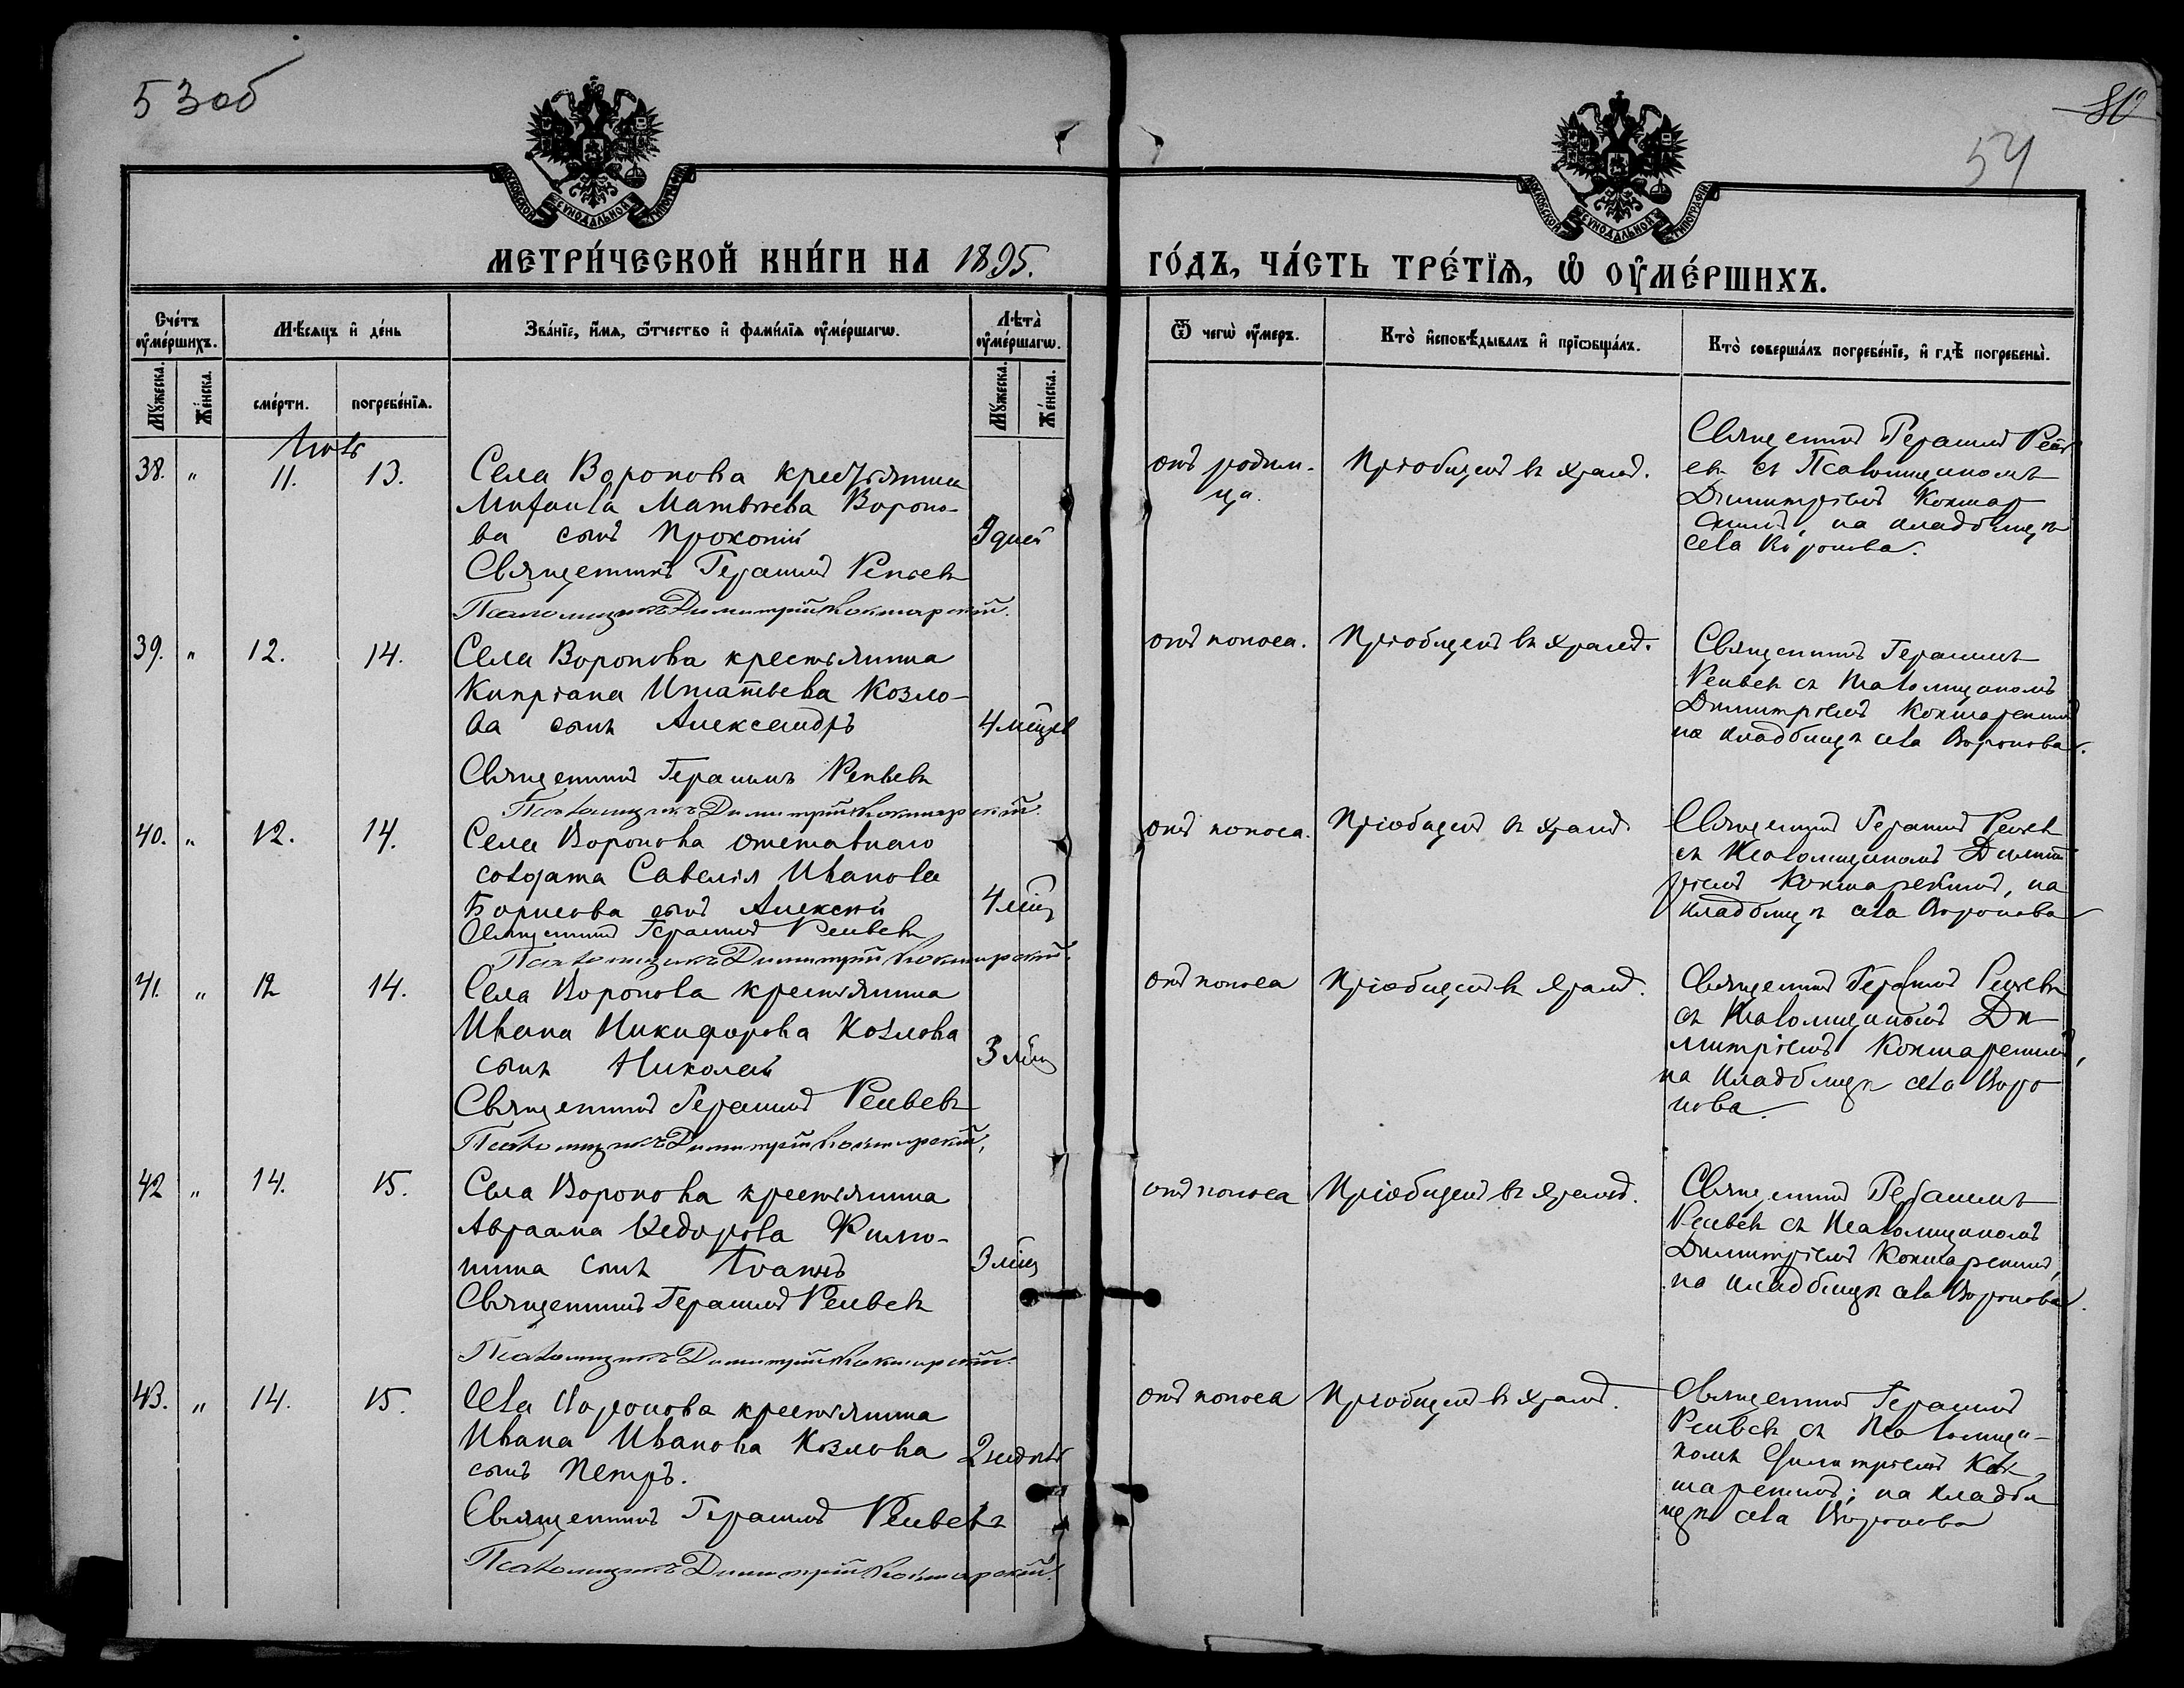 53 об
80
54
МОСКОВСКОЙ СѴНОДАЛЬНОЙ ТИПОГРАФІИ
МОСКОВСКОЙ СѴНОДАЛЬНОЙ ТИПОГРАФІИ
МЕТРИ́ЧЕСКОЙ КНИ́ГИ НА 1895.
ГО́ДЪ, ЧА́СТЬ ТРЕ́ТІѦ, Ѡ҆ ОУ҆МЕ́РШИХЪ.
Сче́тъ оу҆ме́ршихъ.
Мѣ́сяцъ и҆ де́нь
Зва́нїе, и҆́мя, ѻ҆́тчество и҆ фами́лїя оу҆ме́ршагѡ.
Лѣта̀ оу҆ме́ршагѡ.
Ѿ чегѡ̀ оу҆́меръ.
Кто̀ и҆сповѣ́дывалъ и҆ прїѡбща́лъ.
Кто̀ соверша́лъ погребе́нїе, и҆ гдѣ̀ погребены̀.
Му́жеска.
Же́нска.
сме́рти.
погребе́нїя.
Му́жеска.
Же́нска.
Іюль
38. " 11. 13.
Села Воронова крестьянина
Михаила Матвѣева Вороно-
ва сынъ Прокопій
9 дней
Священникъ Герасимъ Репьевъ
Псаломщикъ Димитрій Кокшарскій.
отъ родим-
ца.
Пріобщенъ въ храмѣ.
Священникъ Герасимъ Репь
евъ съ Псаломщикомъ
Димитріемъ Кокшар
скимъ, на кладбищѣ
села Воронова.
39. " 12. 14.
Села Воронова крестьянина
Кипріана Игнатьева Козло-
ва сынъ Александръ
4 мѣсцевъ
Священникъ Герасимъ Репьевъ
Псаломщикъ Димитрій Кокшарскій.
отъ поноса.
Пріобщенъ въ храмѣ.
Священникъ Герасимъ
Репьевъ съ Псаломщикомъ
Димитріемъ Кокшарскимъ
на кладбищѣ села Воронова.
40. " 12. 14.
Села Воронова отставнаго
солдата Савелія Иванова
Борисова сынъ Алексѣй
4 мѣс
Священникъ Герасимъ Репьевъ
Псаломщикъ Димитрій Кокшарскій.
отъ поноса.
Пріобщенъ въ храмѣ
Священникъ Герасимъ Репьевъ
съ Псаломщикомъ Димит
ріемъ Кокшарскимъ, на
кладбищѣ села Воронова
41. " 12 14.
Села Воронова крестьянина
Ивана Никифорова Козлова
сынъ Николай
3 мѣс
Священникъ Герасимъ Репьевъ
Псаломщикъ Димитрій Кокшарскій,
отъ поноса
Пріобщенъ въ храмѣ.
Священникъ Герасимъ Репьевъ
съ Псаломщикомъ Ди
митріемъ Кокшарскимъ,
на кладбищѣ села Воро
нова.
42 " 14. 15.
Села Воронова крестьянина
Авраама Ѳедорова
сынъ Іоаннъ
3 мѣс
Священникъ Герасимъ Репьевъ
Псаломщикъ Димитрій Кокшарскій.
отъ поноса
Пріобщенъ въ храмѣ.
Священникъ Герасимъ
Репьевъ съ Псаломщикомъ
Димитріемъ Кокшарскимъ,
на кладбищѣ села Воронова.
43. " 14. 15.
Села Воронова крестьянина
Ивана Иванова Козлова
сынъ Петръ.
2 недѣль
Священникъ Герасимъ Репьевъ
Псаломщикъ Димитрій Кокшарскій.
отъ поноса
Пріобщенъ въ храмѣ.
Священникъ Герасимъ
Репьевъ съ Псаломщи-
комъ Димитріемъ Кок
шарскимъ; на кладби
щѣ села Воронова